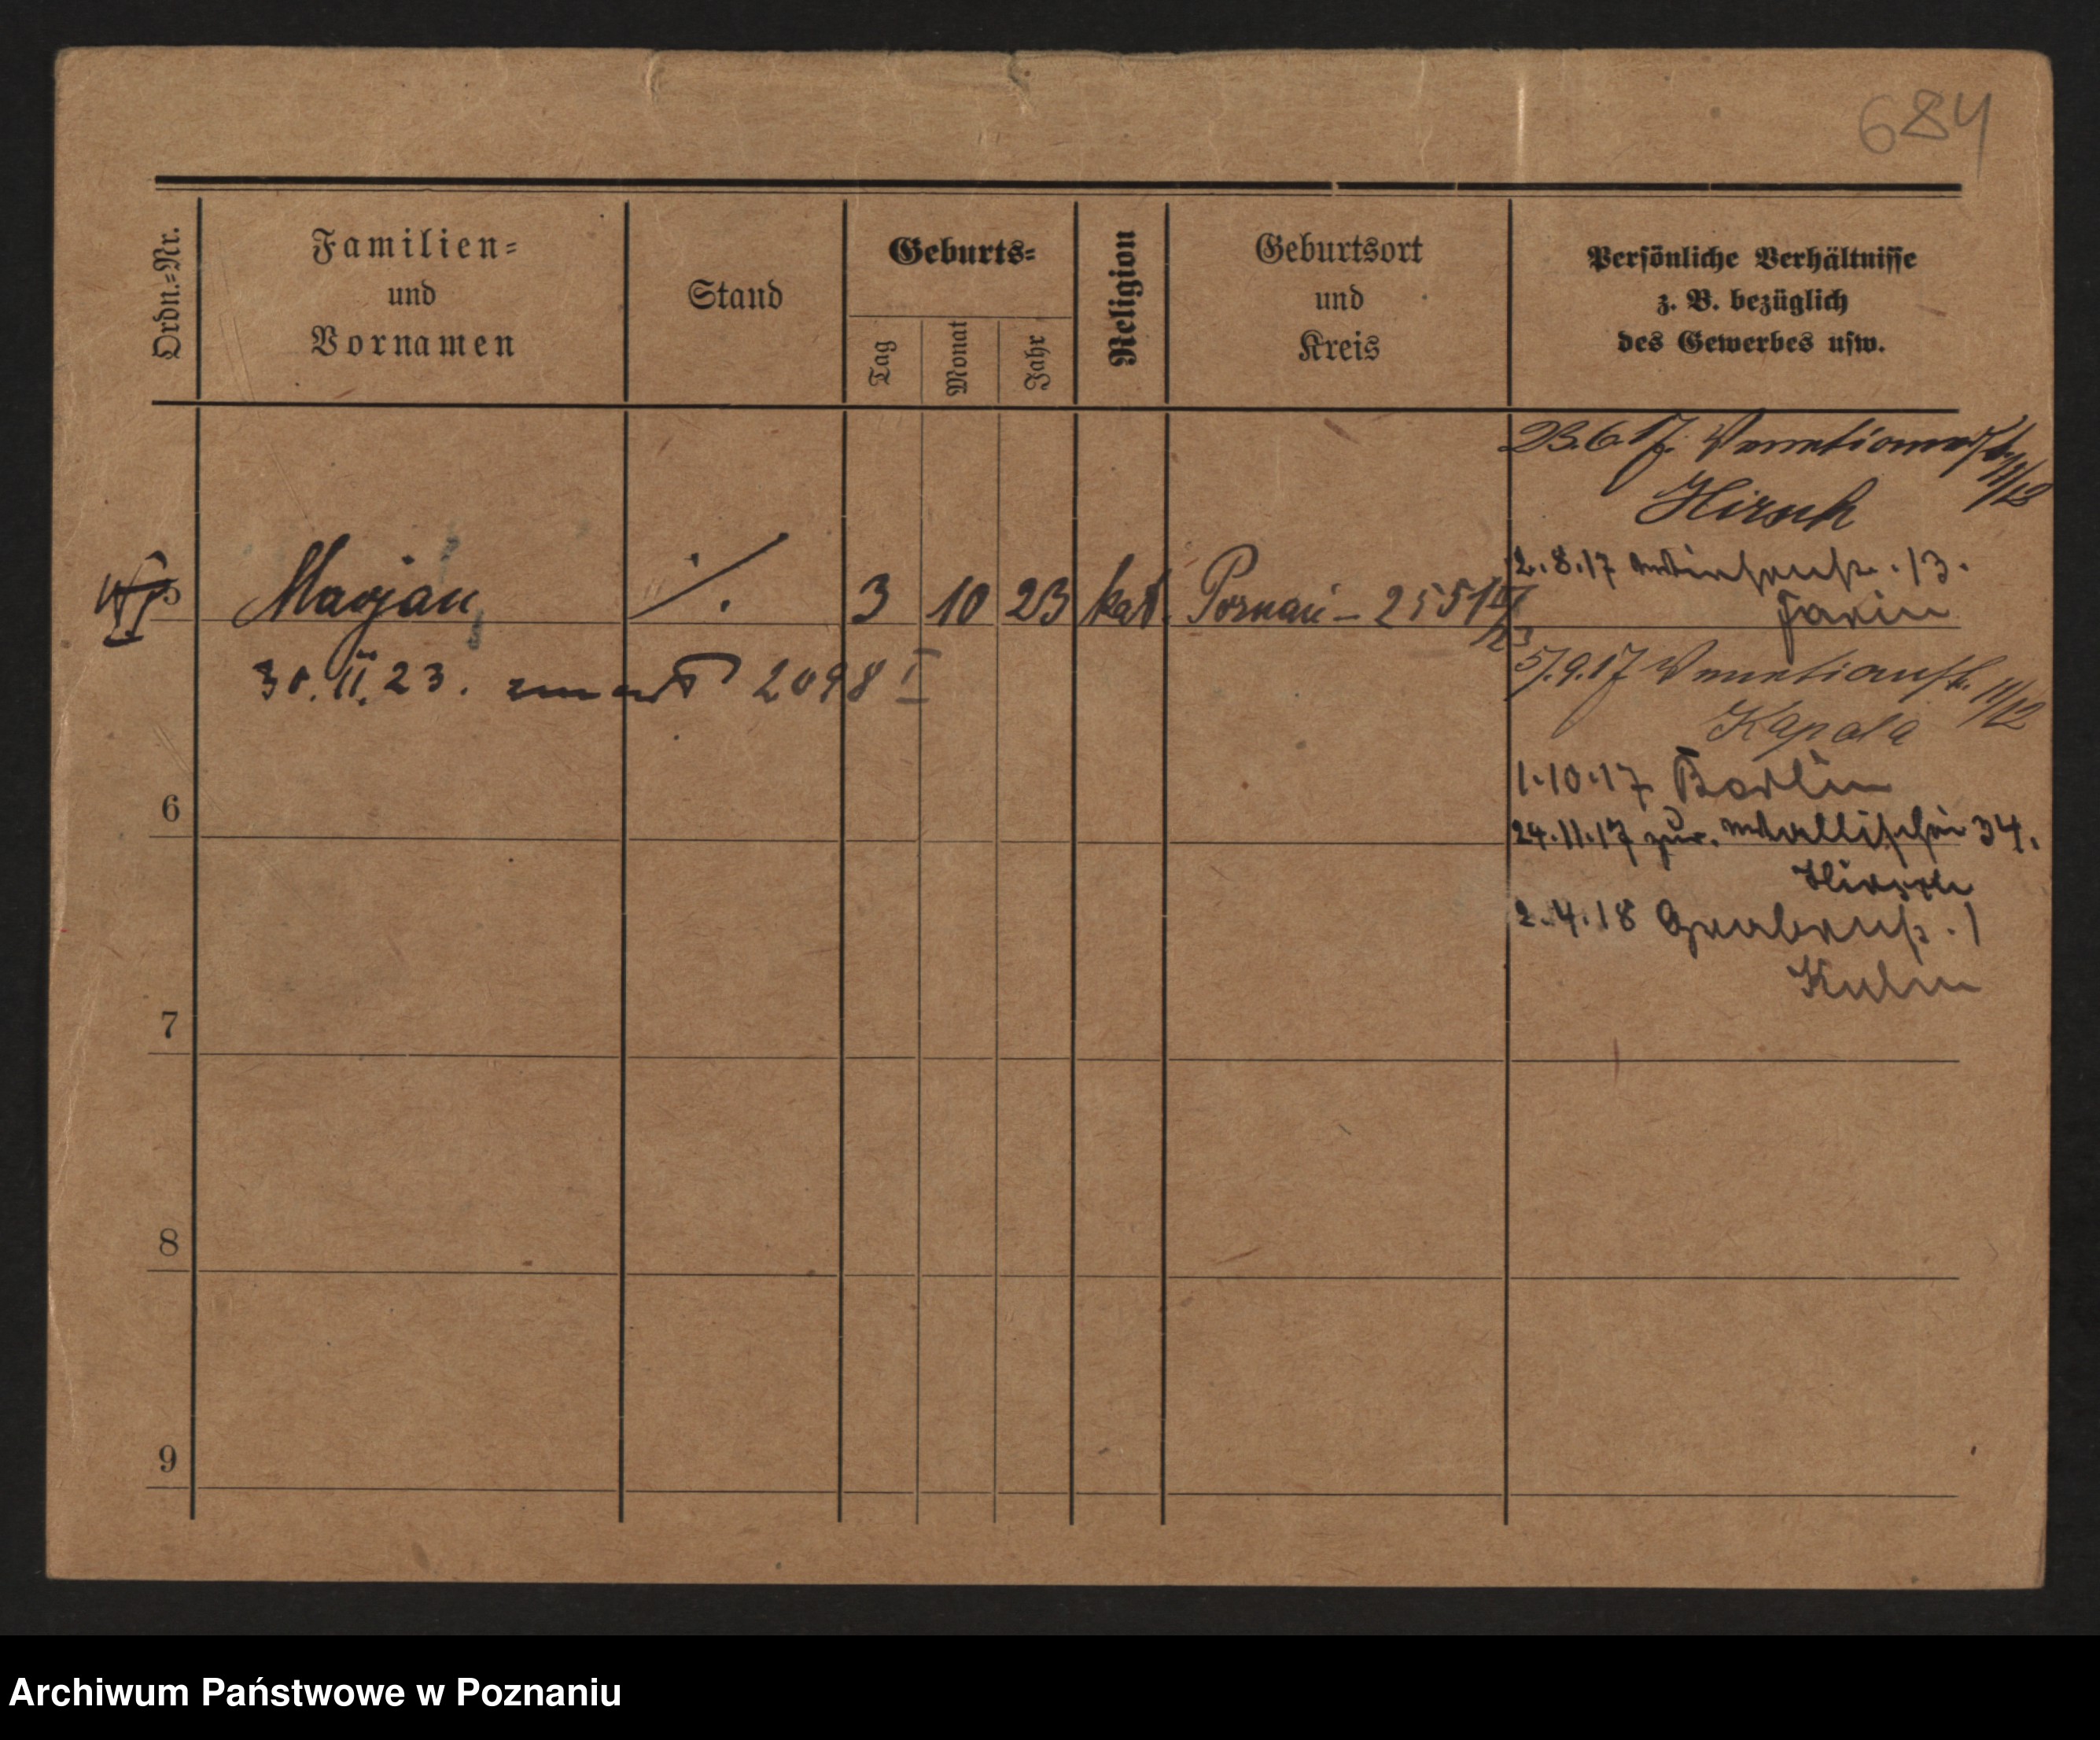 684
Ordn.-Nr.
Familien-
und
Vornamen
Stand
Geburts-
Tag
Monat
Jahr
Religion
Geburtsort
und
Kreis
Persönliche Verhältnisse
z. B. bezüglich
des Gewerbes usw.
23.6.17. Venetianerstr. 11/12
Hirsch
2.8.17 13.
5
Marjan
·/.
3
10
23
kat.
Poznań – 2551
/23
30.11.23. zmarł 2098 I
5.9.17 Venetianstr. 11/12
Kapala
1.10.17 Berlin
6
24.11.17 zur. Wallischei 34.
Hirsch
2.4.18 Grabenstr. 1
7
8
9
Archiwum Państwowe w Poznaniu